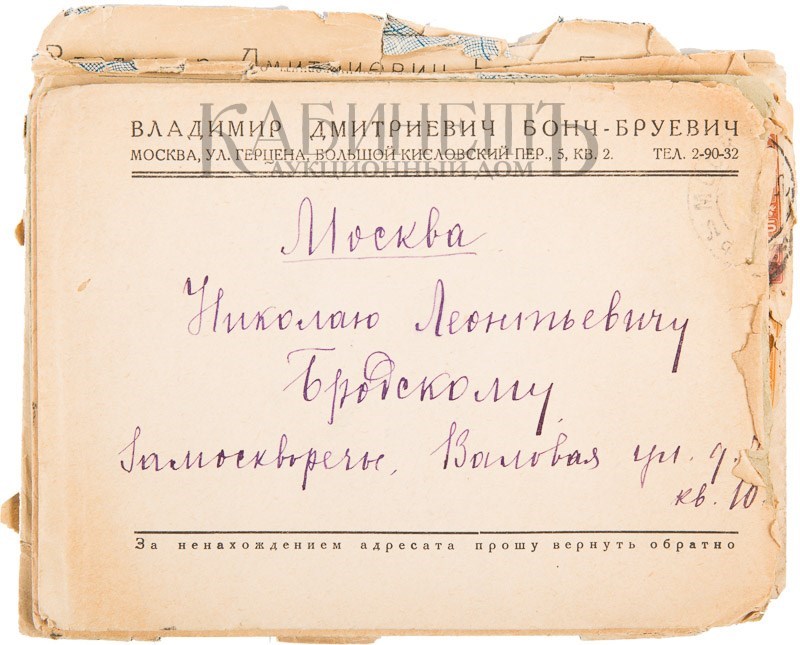 Дмитриевич
КАБИНЕТЪ
АУКЦИОННЫЙ ДОМ
ВЛАДИМИР ДМИТРИЕВИЧ БОНЧ-БРУЕВИЧ
МОСКВА, УЛ. ГЕРЦЕНА, БОЛЬШОЙ КИСЛОВСКИЙ ПЕР., 5, КВ. 2. ТЕЛ. 2-90-32
Москва
Николаю Леонтьевичу
Бродскому
Замоскворечье, Валовая ул. д.
кв. 10.
За ненахождением адресата прошу вернуть обратно